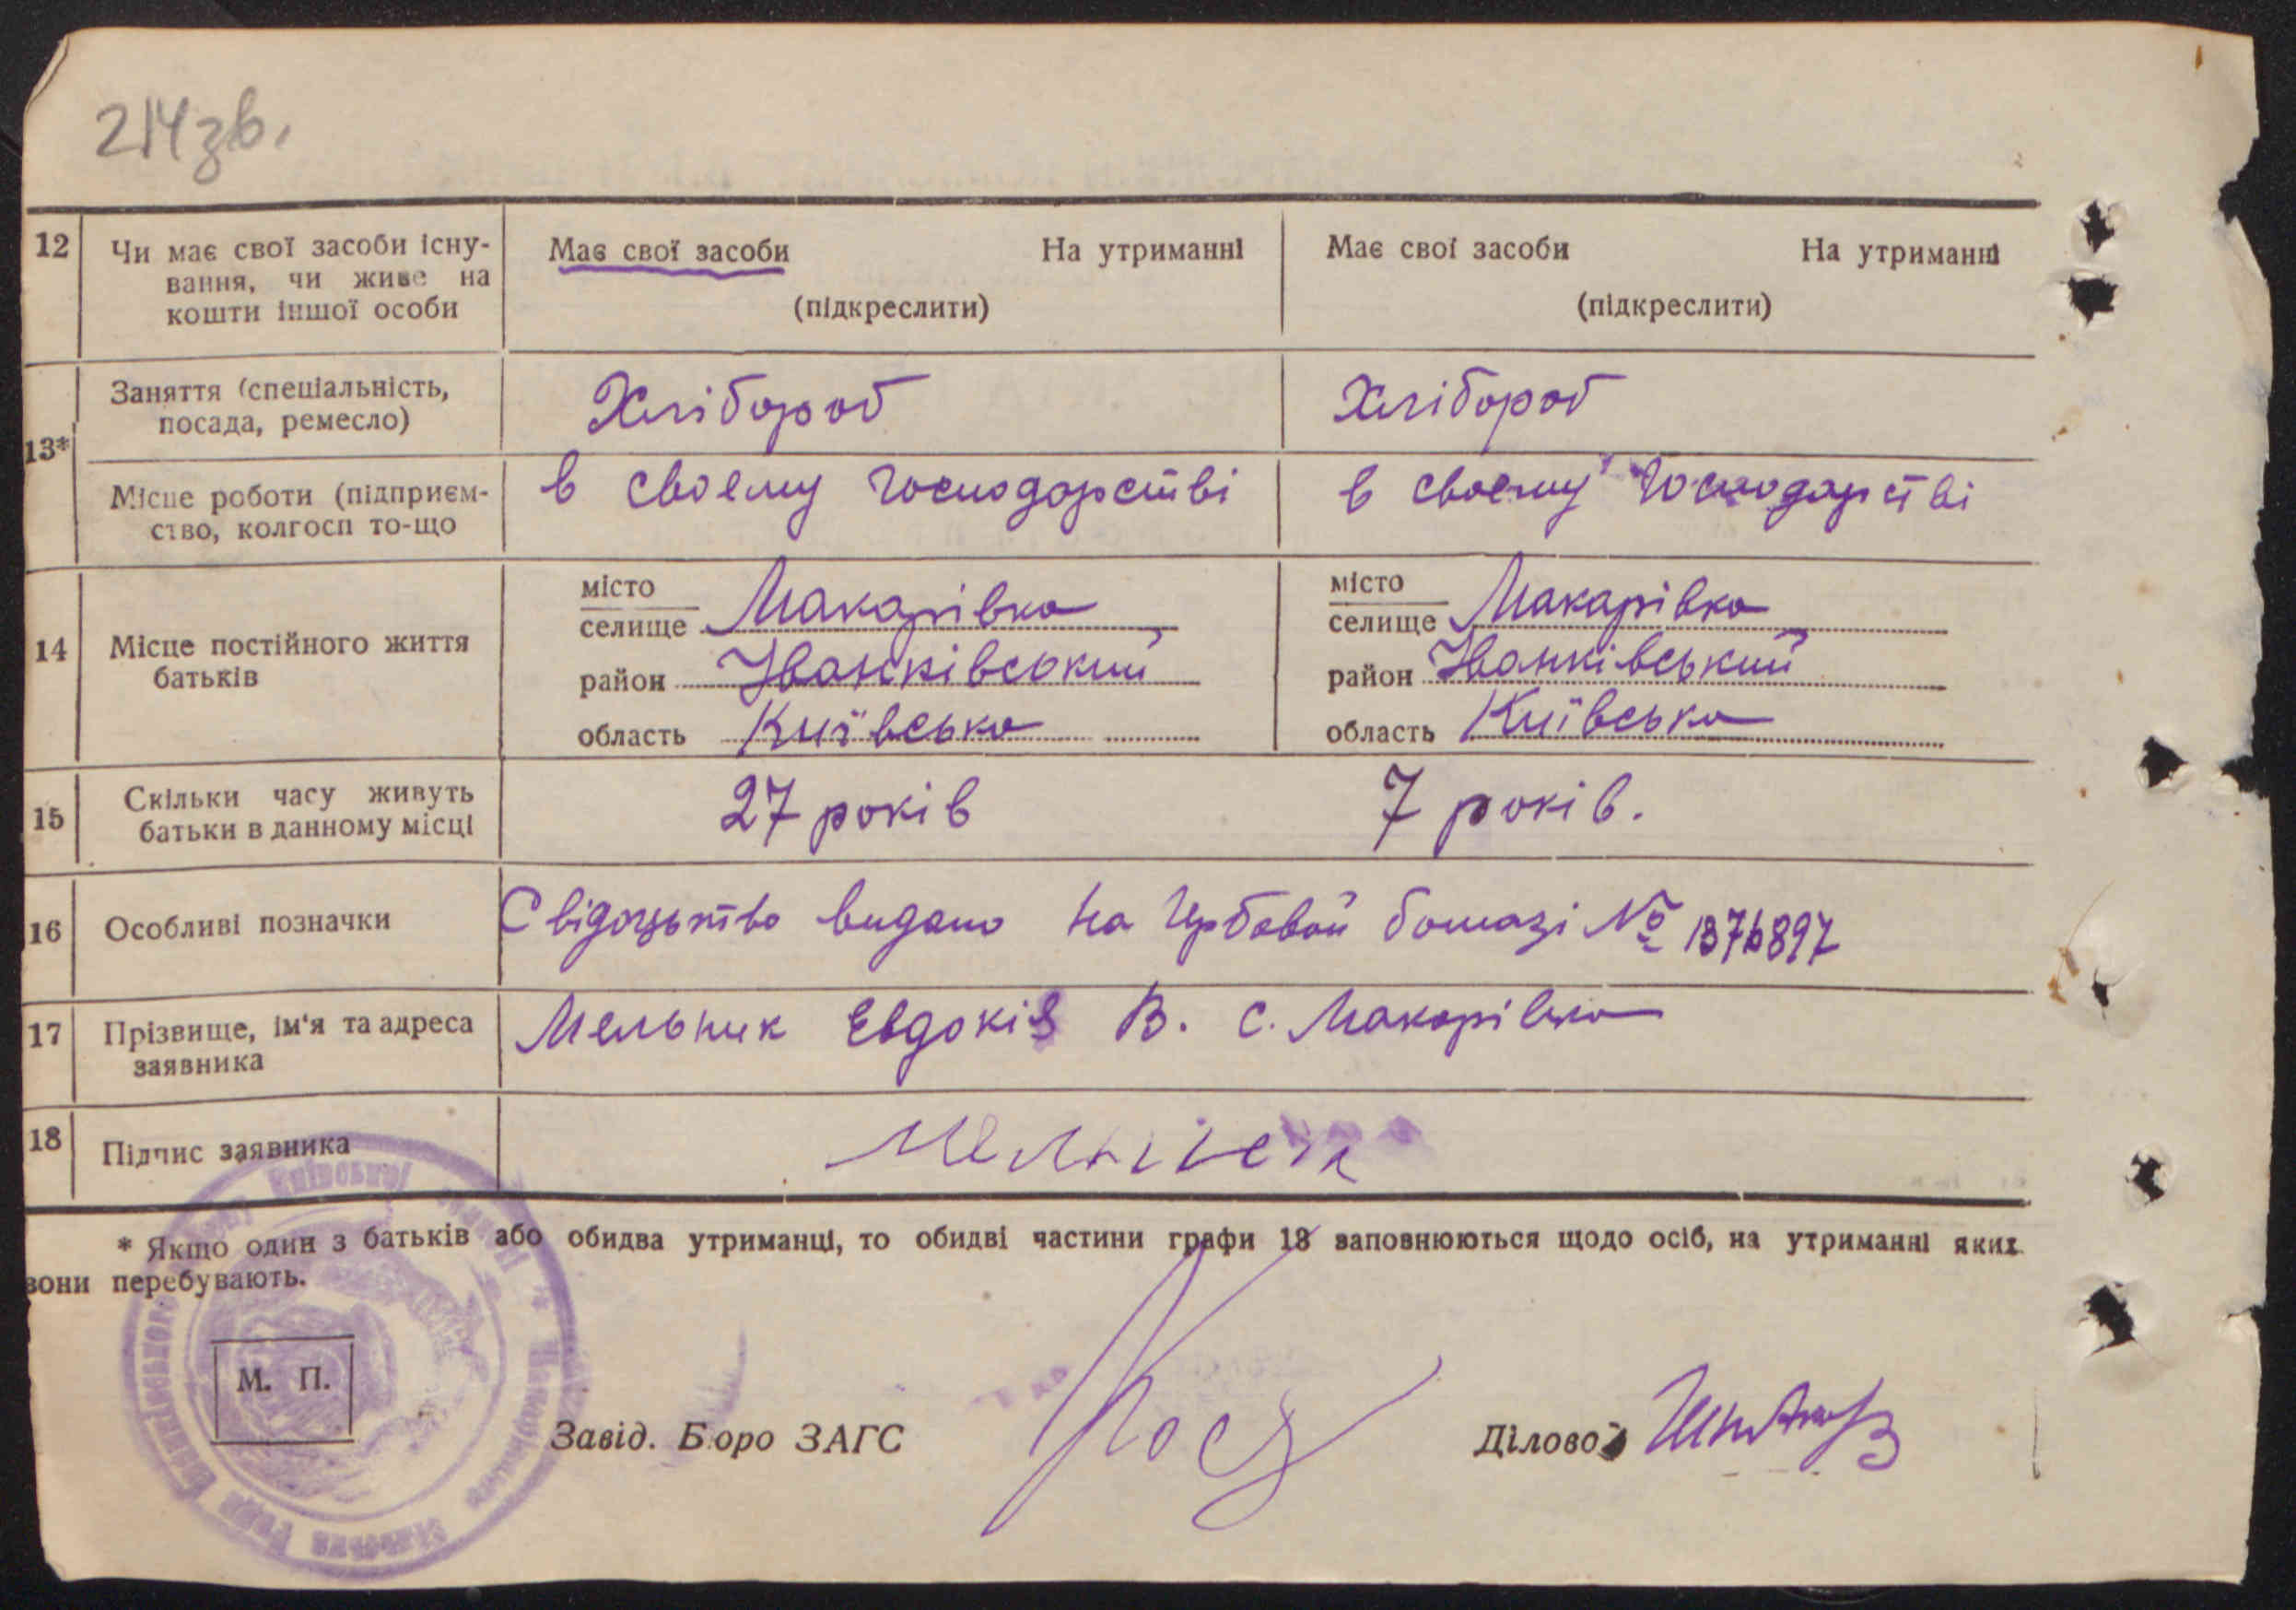 214зв.
12 Чи має свої засоби існу- Має свої засоби На утриманні Має свої засоби На утриманні
вання, чи живе на
кошти іншої особи (підкреслити) (підкреслити)
Заняття (спеціальність, Хлібороб Хлібороб
посада, ремесло)
13*
Місце роботи (підприєм- в своему господарстві в своему господарстві
ство, колгосп то-що
місто місто
селище Макарівка селище Макарівка
14 Місце постійного життя
батьків
район Іванківський район Іванківський
область Київська область Київська
15 Скільки часу живуть 27 років 7 років.
батьки в данному місці
16 Особливі позначки Свідоцьтво видано на гербовой бомазі № 1376897
17 Прізвище, ім'я та адреса Мельник Евдокія В. с. Макарівка
заявника
18 Підпис заявника Мельник
* Якщо один з батьків або обидва утриманці, то обидві частини графи 13 заповнюються щодо осіб, на утриманні яких
вони перебувають.
М. П.
Завід. Бюро ЗАГС Діловод